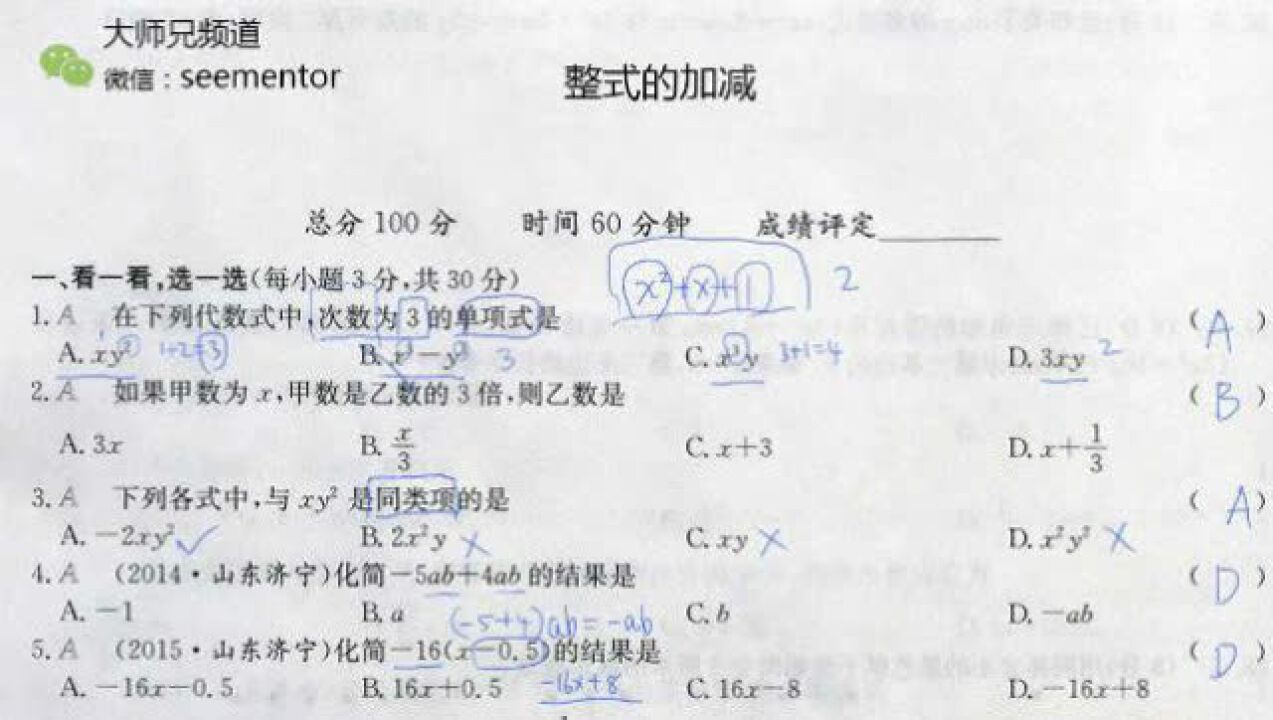 大师兄频道
微信：seementor
整式的加减
总分 100 分 时间 60 分钟 成绩评定
一、看一看，选一选(每小题 3 分，共 30 分)
x²+x+1 2
1. A 在下列代数式中，次数为 3 的单项式是 ( A )
A. xy² 1+2=3 B. x³-y³ 3 C. x³y 3+1=4 D. 3xy 2
2. A 如果甲数为 x，甲数是乙数的 3 倍，则乙数是 ( B )
A. 3x B. x/3 C. x+3 D. x+1/3
3. A 下列各式中，与 xy² 是同类项的是 ( A )
A. -2xy² ✓ B. 2x²y × C. xy × D. x²y² ×
4. A (2014·山东济宁)化简-5ab+4ab 的结果是 ( D )
A. -1 B. a (-5+4)ab=-ab C. b D. -ab
5. A (2015·山东济宁)化简-16(x-0.5)的结果是 ( D )
A. -16x-0.5 B. 16x+0.5 -16x+8 C. 16x-8 D. -16x+8